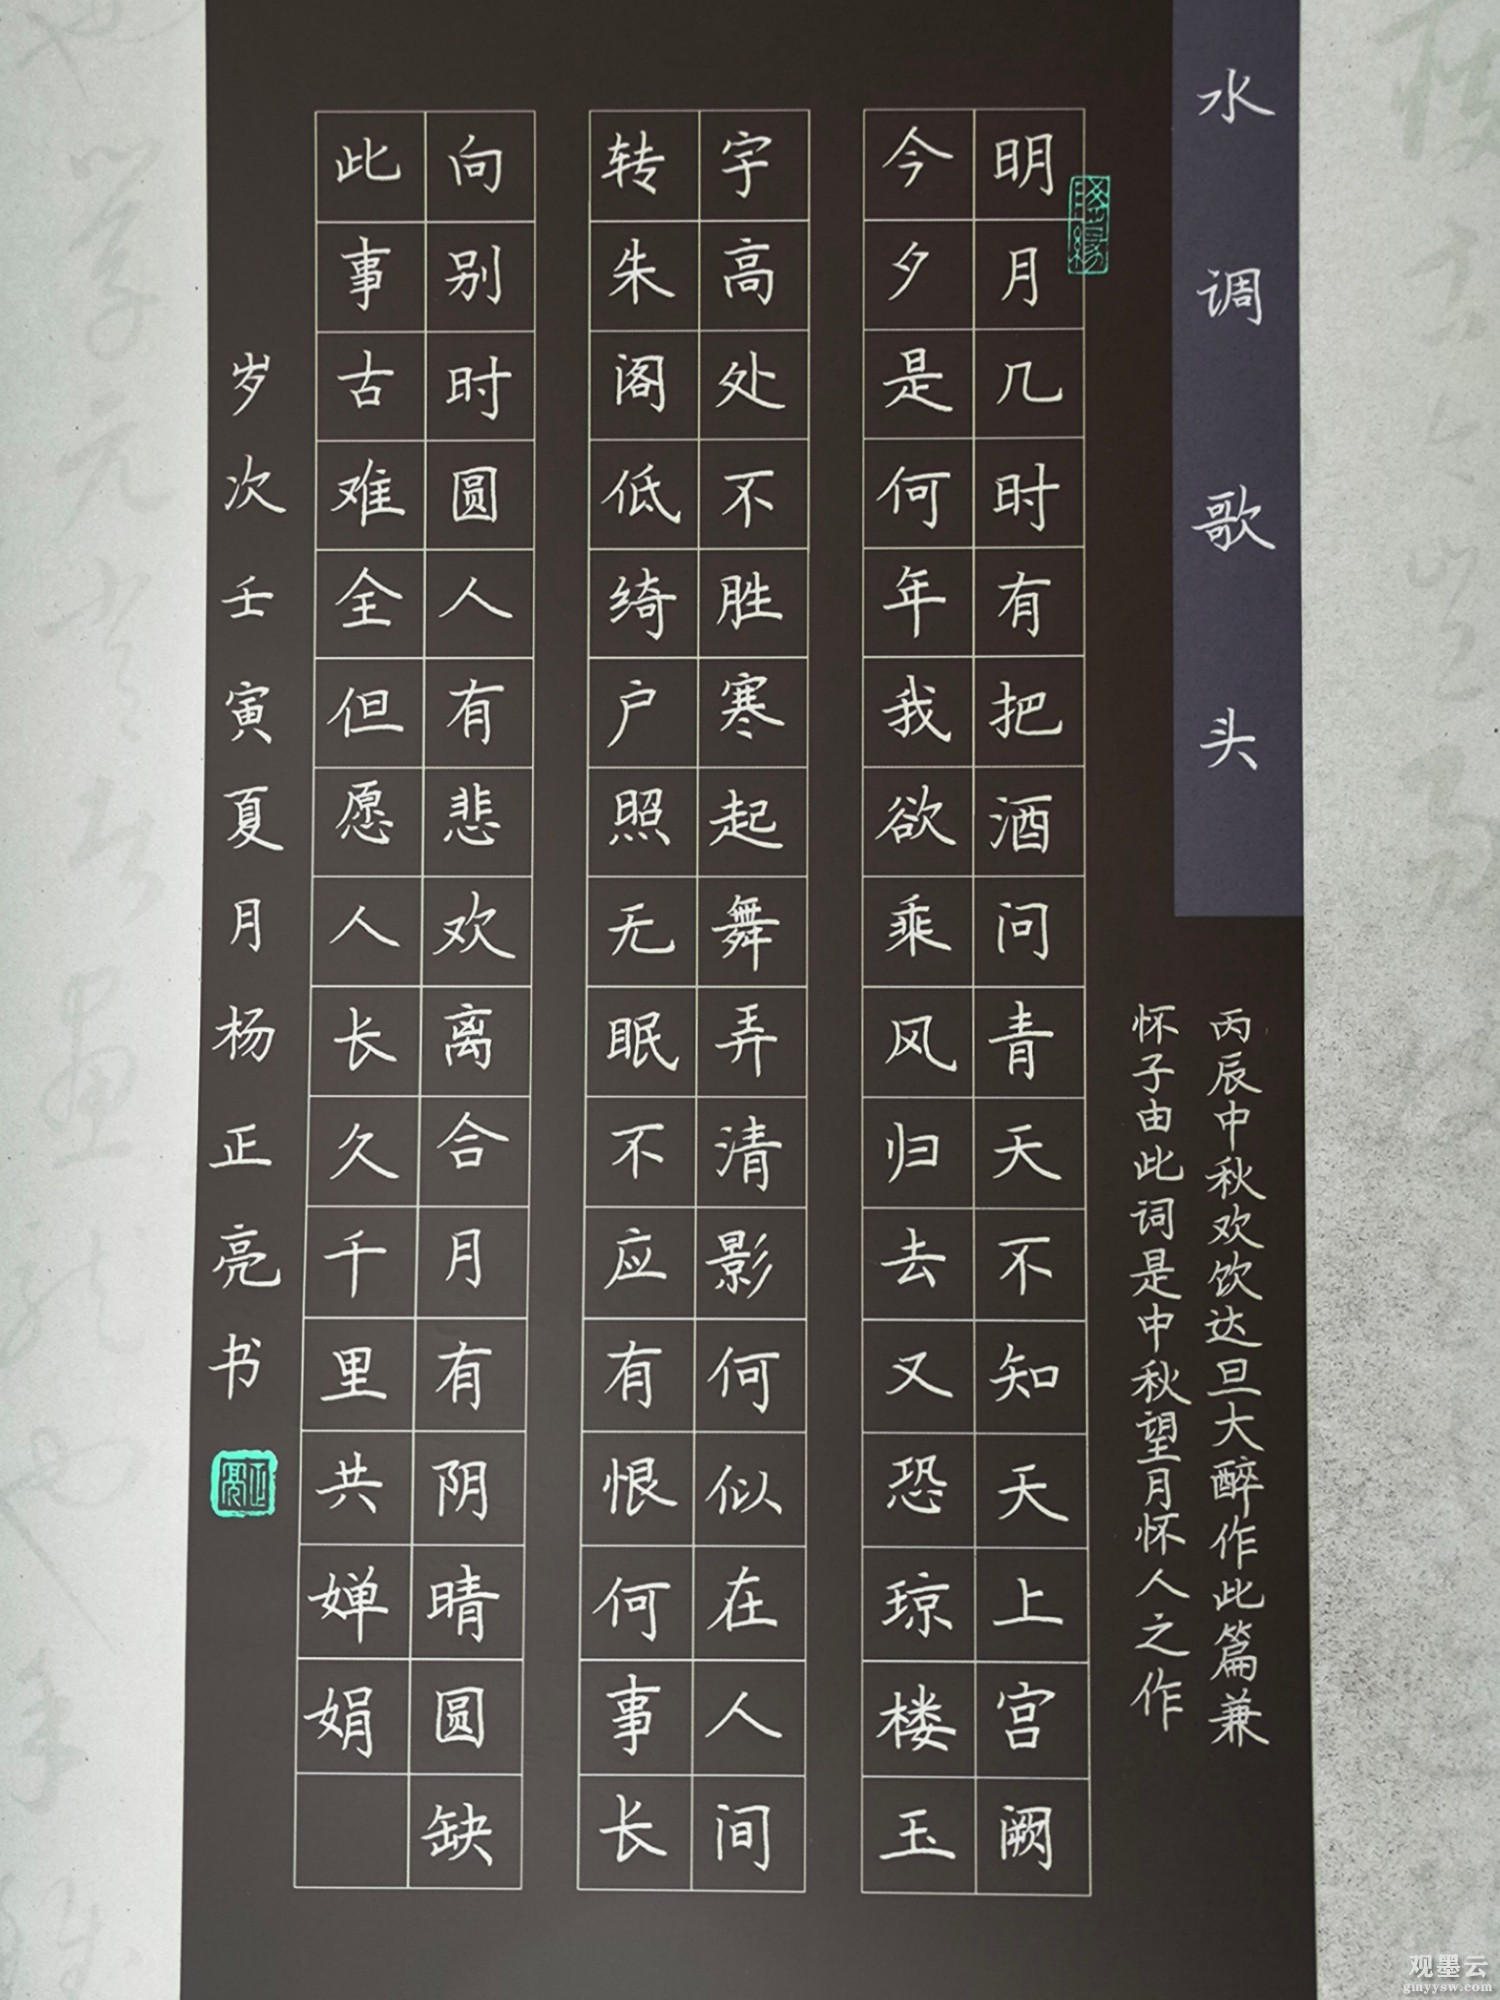 水调歌头
丙辰中秋欢饮达旦大醉作此篇兼
怀子由此词是中秋望月怀人之作
明月几时有把酒问青天不知天上宫阙
今夕是何年我欲乘风归去又恐琼楼玉
宇高处不胜寒起舞弄清影何似在人间
转朱阁低绮户照无眠不应有恨何事长
向别时圆人有悲欢离合月有阴晴圆缺
此事古难全但愿人长久千里共婵娟
岁次壬寅夏月杨正亮书
正亮
观墨云
gmyysw.com